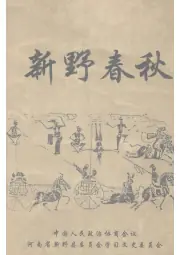 新野春秋
中国人民政治协商会议
河南省新野县委员会学习文史委员会